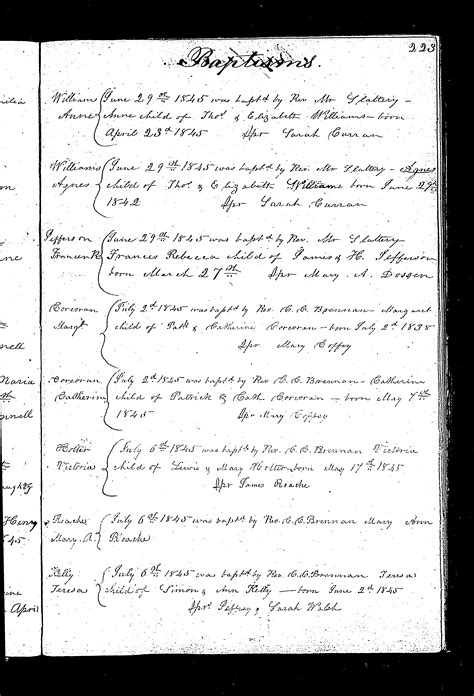 223
Baptisms.
William Anne { June 29th 1845 was bapt'd by Rev Mr Slattery –
Anne child of Thos. & Elizabeth Williams – born
April 23d 1845 Spr Sarah Curran
Williams Agnes { June 29th 1845 was bapt'd by Rev. Mr Slattery – Agnes
child of Thos. & Elizabeth Williams born June 29th
1842 Spr Sarah Curran
Jefferson Frances R { June 29th 1845 was bapt'd by Rev. Mr Slattery
Frances Rebecca child of James & H. Jefferson
born March 27th Spr Mary A.
Corcoran Margt { July 2d 1845 was bapt'd by Rev. C. C. Brennan – Margaret
child of Patk & Catharine Corcoran – born July 2d 1838
Spr Mary Coffey
Corcoran Catherine { July 2d 1845 was bapt'd by Rev C. C. Brennan – Catherine
child of Patrick & Cath Corcoran – born May 7th
1845 Spr Mary Coffey
Holter Victoria { July 6th 1845 was bapt'd by Rev. C. C. Brennan Victoria
child of Lewis & Mary Holter born May 17th 1845
Spr James Roache
Roache Mary A. { July 6th 1845 was bapt'd by Rev. C. C. Brennan Mary Ann
Roache
Kelly Teresa { July 6th 1845 was bapt'd by Rev. C. C. Brennan Teresa
child of Simon & Ann Kelly – born June 2d 1845
Sprs Jeffrey & Sarah Walsh
naria
nnell
Henry
45
April